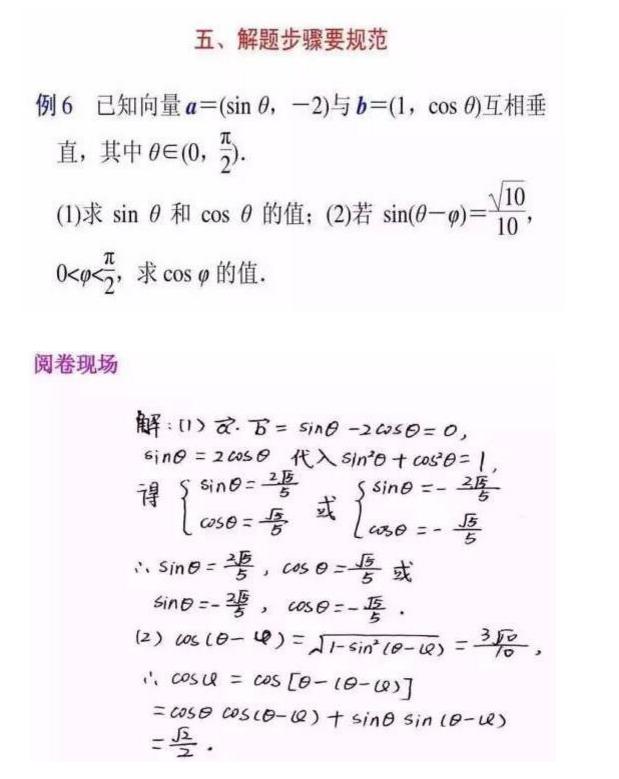 五、解题步骤要规范
例6 已知向量a=(sin θ，－2)与b=(1，cos θ)互相垂
直，其中θ∈(0，π/2).
(1)求 sin θ 和 cos θ 的值；(2)若 sin(θ－φ)=√10/10，
0<φ<π/2，求 cos φ 的值.
阅卷现场
解:(1) a⃗·b⃗ = sinθ -2cosθ = 0,
sinθ = 2cosθ 代入 sin²θ + cos²θ = 1,
得 { sinθ = 2√5/5 cosθ = √5/5 或 { sinθ = - 2√5/5 cosθ = - √5/5
∴ sinθ = 2√5/5 , cosθ = √5/5 或
sinθ = - 2√5/5 , cosθ = - √5/5 .
(2) cos(θ-φ) = √(1-sin²(θ-φ)) = 3√10/10 ,
∴ cosφ = cos[θ-(θ-φ)]
= cosθ cos(θ-φ) + sinθ sin(θ-φ)
= √2/2 .